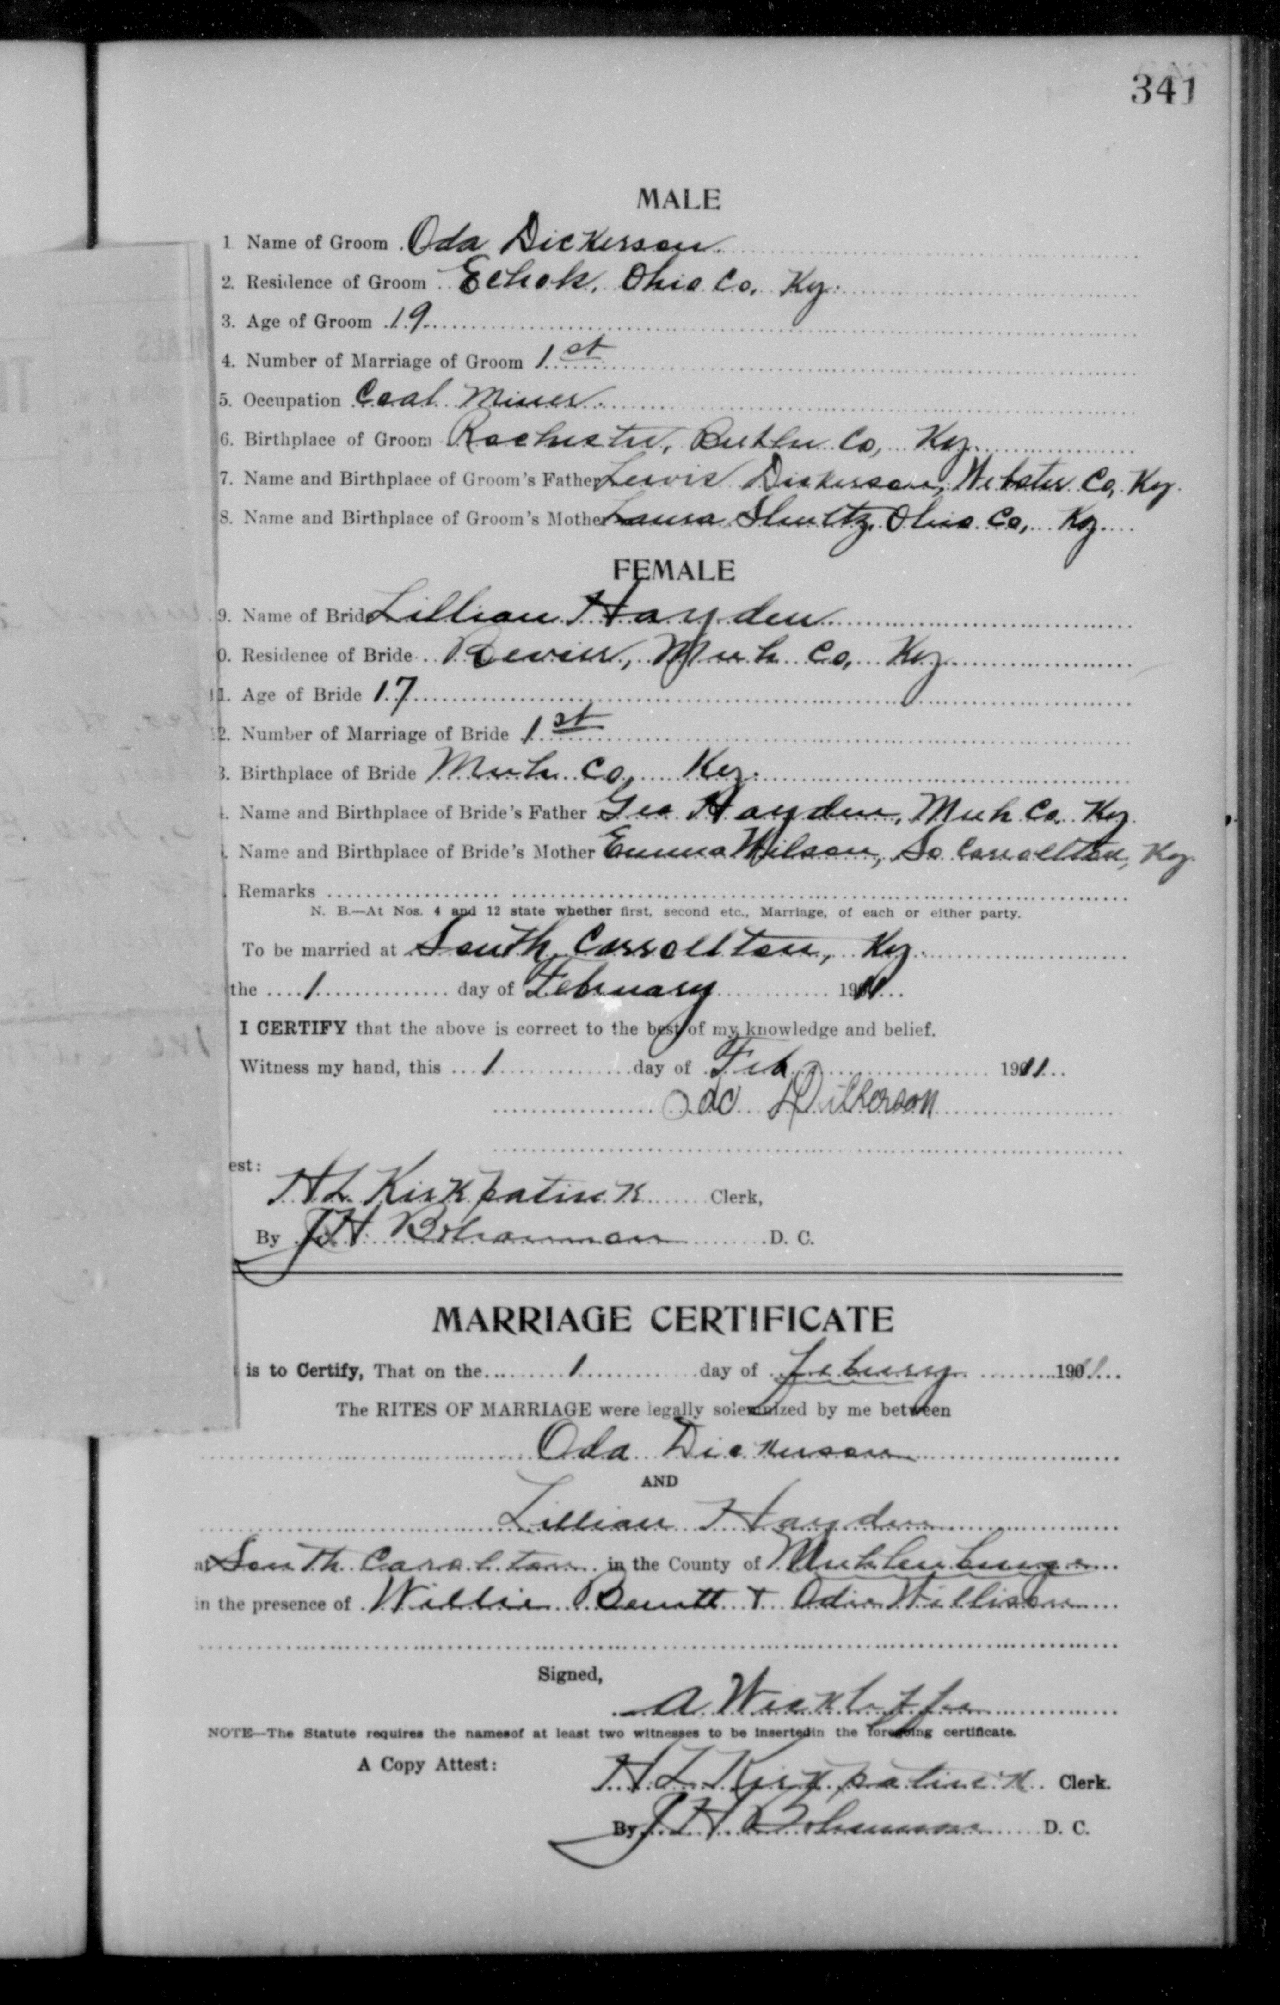 341
MALE
1 Name of Groom Oda Dickerson
2. Residence of Groom Echols, Ohio Co, Ky.
3. Age of Groom 19
4. Number of Marriage of Groom 1st
5. Occupation Coal Miner
6. Birthplace of Groom Rochester, Butler Co, Ky
7. Name and Birthplace of Groom's Father Lewis Dickerson, Webster Co, Ky.
8. Name and Birthplace of Groom's Mother Laura Shultz, Ohio Co, Ky
FEMALE
9. Name of Brid Lillian Hayden
0. Residence of Bride Bevier, Muh Co, Ky
11. Age of Bride 17
12. Number of Marriage of Bride 1st
3. Birthplace of Bride Muh Co, Ky.
Name and Birthplace of Bride's Father Geo Hayden, Muh Co, Ky
Name and Birthplace of Bride's Mother Emma Wilson, So Carrollton, Ky
Remarks
N. B.—At Nos. 4 and 12 state whether first, second etc., Marriage, of each or either party.
To be married at South Carrollton, Ky.
the 1 day of February 1911
I CERTIFY that the above is correct to the best of my knowledge and belief.
Witness my hand, this 1 day of Feb 1911
Oda Dickerson
est:
H L Kirkpatrick Clerk,
By J H Bohannan D. C.
MARRIAGE CERTIFICATE
is to Certify, That on the 1 day of Febury 1911
The RITES OF MARRIAGE were legally solemnized by me between
Oda Dickerson
AND
Lillian Hayden
at South Carolton in the County of
in the presence of Willie & Odie Willison
Signed,
A Wickliffe
NOTE—The Statute requires the namesof at least two witnesses to be insertedin the foregoing certificate.
A Copy Attest:
H L Kirkpatrick Clerk.
By J H Bohannan D. C.